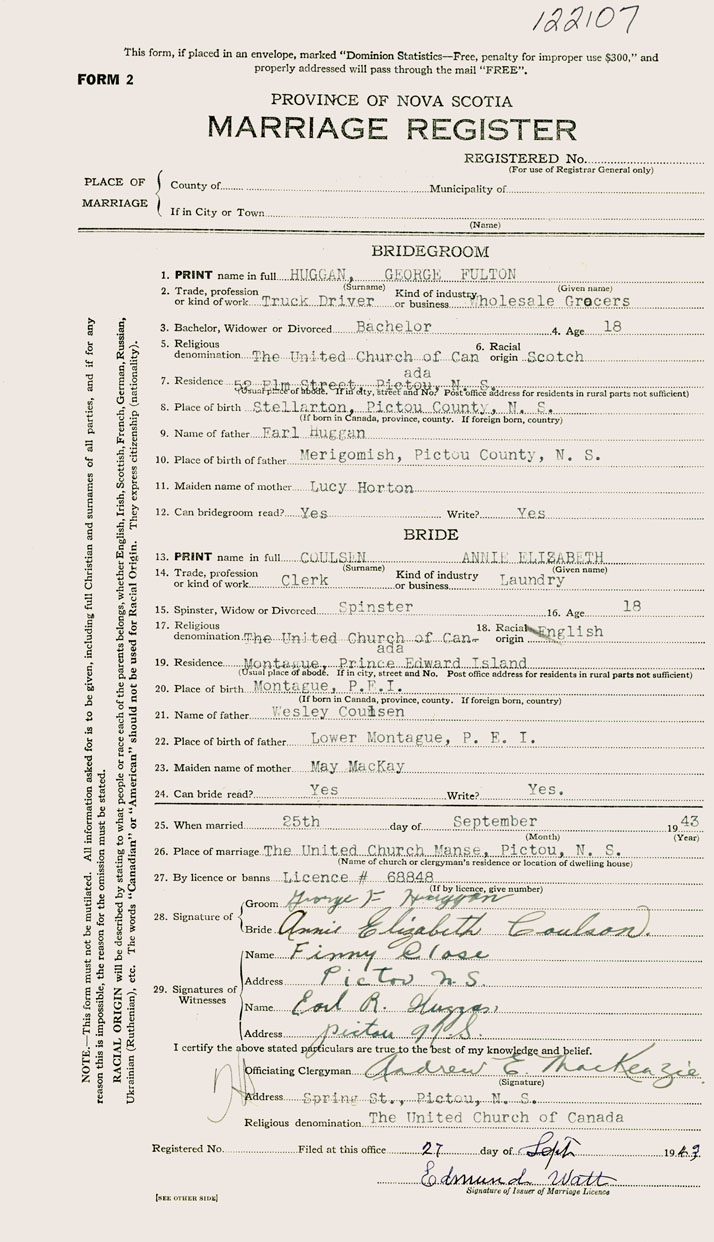 122107
This form, if placed in an envelope, marked “Dominion Statistics—Free, penalty for improper use $300,” and
properly addressed will pass through the mail “FREE”.
FORM 2
PROVINCE OF NOVA SCOTIA
MARRIAGE REGISTER
REGISTERED No.
(For use of Registrar General only)
PLACE OF MARRIAGE
County of Municipality of
If in City or Town
(Name)
BRIDEGROOM
1. PRINT name in full HUGGAN, GEORGE FULTON
(Surname) (Given name)
2. Trade, profession or kind of work Truck Driver Kind of industry or business Wholesale Grocers
3. Bachelor, Widower or Divorced Bachelor 4. Age 18
5. Religious denomination The United Church of Can 6. Racial origin Scotch
ada
7. Residence 52 Elm Street, Pictou, N. S.
(Usual place of abode. If in city, street and No. Post office address for residents in rural parts not sufficient)
8. Place of birth Stellarton, Pictou County, N. S.
(If born in Canada, province, county. If foreign born, country)
9. Name of father Earl Huggan
10. Place of birth of father Merigomish, Pictou County, N. S.
11. Maiden name of mother Lucy Horton
12. Can bridegroom read? Yes Write? Yes
BRIDE
13. PRINT name in full COULSEN ANNIE ELIZABETH
(Surname) (Given name)
14. Trade, profession or kind of work Clerk Kind of industry or business Laundry
15. Spinster, Widow or Divorced Spinster 16. Age 18
17. Religious denomination The United Church of Can- 18. Racial origin English
ada
19. Residence Montague, Prince Edward Island
(Usual place of abode. If in city, street and No. Post office address for residents in rural parts not sufficient)
20. Place of birth Montague, P.E.I.
(If born in Canada, province, county. If foreign born, country)
21. Name of father Wesley Coulsen
22. Place of birth of father Lower Montague, P. E. I.
23. Maiden name of mother May MacKay
24. Can bride read? Yes Write? Yes.
25. When married 25th day of September 1943
(Month) (Year)
26. Place of marriage The United Church Manse, Pictou, N. S.
(Name of church or clergyman's residence or location of dwelling house)
27. By licence or banns Licence # 68848
(If by licence, give number)
28. Signature of
Groom George F Huggan
Bride Annie Elizabeth Coulson.
29. Signatures of Witnesses
Name Finny Close
Address Pictou N.S.
Name Earl R. Huggan
Address Pictou N.S.
I certify the above stated particulars are true to the best of my knowledge and belief.
Officiating Clergyman Andrew E. MacKenzie.
(Signature)
Address Spring St., Pictou, N. S.
Religious denomination The United Church of Canada
Registered No. Filed at this office 27 day of Sept 1943
Edmund Watt
Signature of Issuer of Marriage Licence
[SEE OTHER SIDE]
NOTE.—This form must not be mutilated. All information asked for is to be given, including full Christian and surnames of all parties, and if for any
reason this is impossible, the reason for the omission must be stated.
RACIAL ORIGIN will be described by stating to what people or race each of the parents belongs, whether English, Irish, Scottish, French, German, Russian,
Ukrainian (Ruthenian), etc. The words “Canadian” or “American” should not be used for Racial Origin. They express citizenship (nationality).